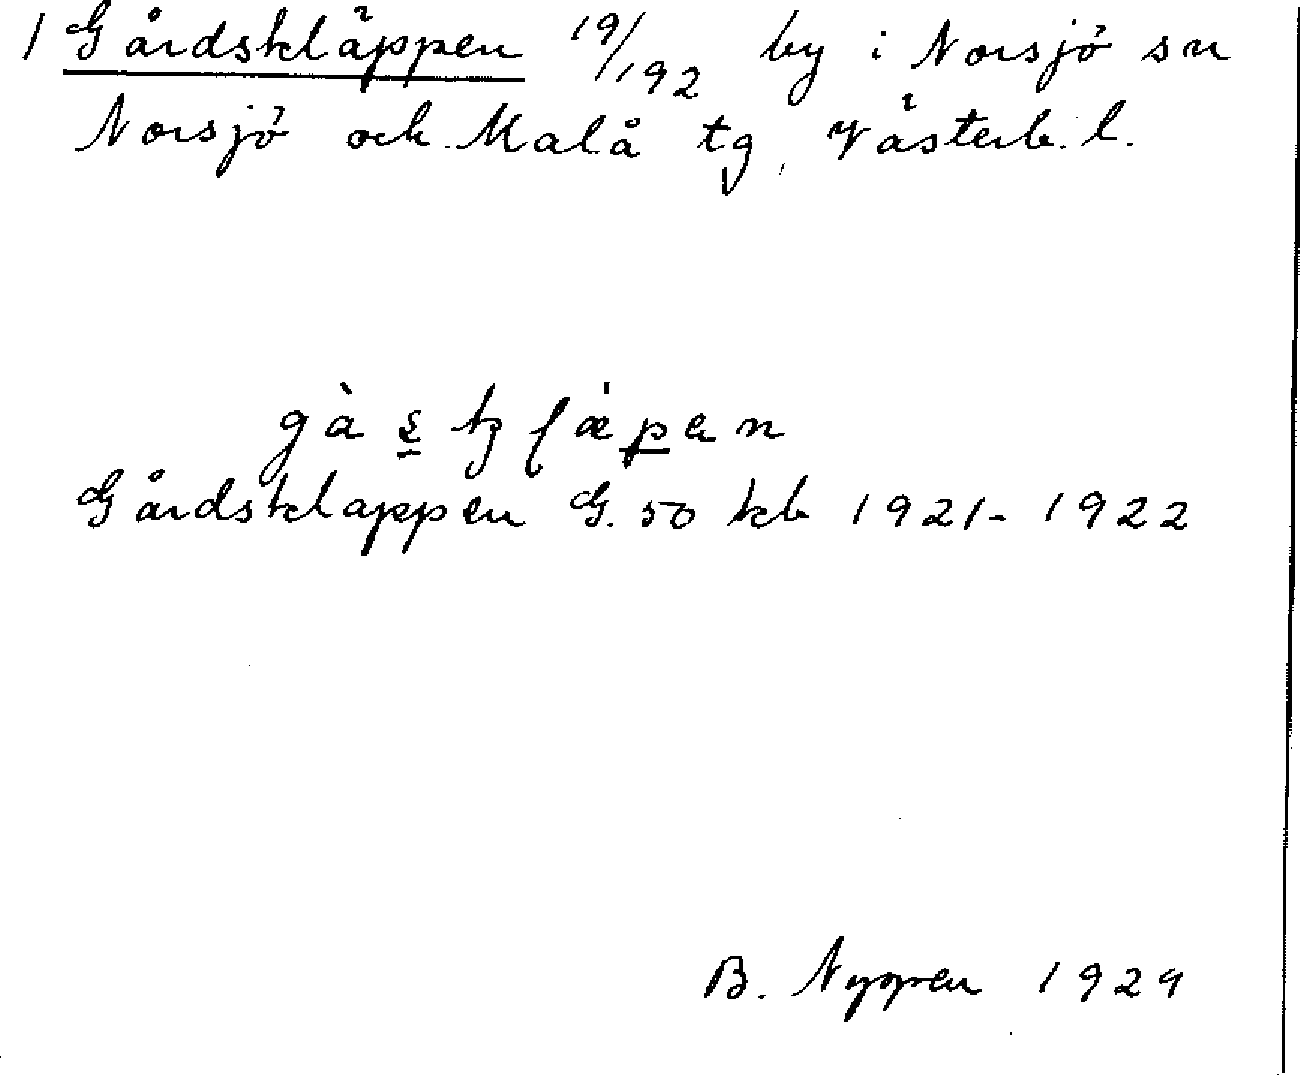 1 Gårdskläppen 19/192 by i Norsjö sn
Norsjö och Malå tg, Västerb. l.
Gårdsklappen G. 50 kb 1921-1922
B. Nygren 1929